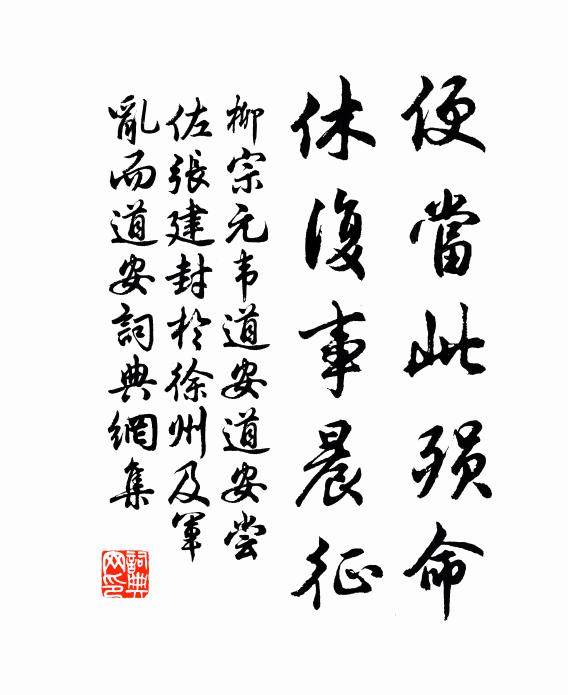 便當此殞命
休復事晨征
柳宗元韦道安道安尝
佐張建封於徐州及軍
亂而道安詞典網集
詞典网印